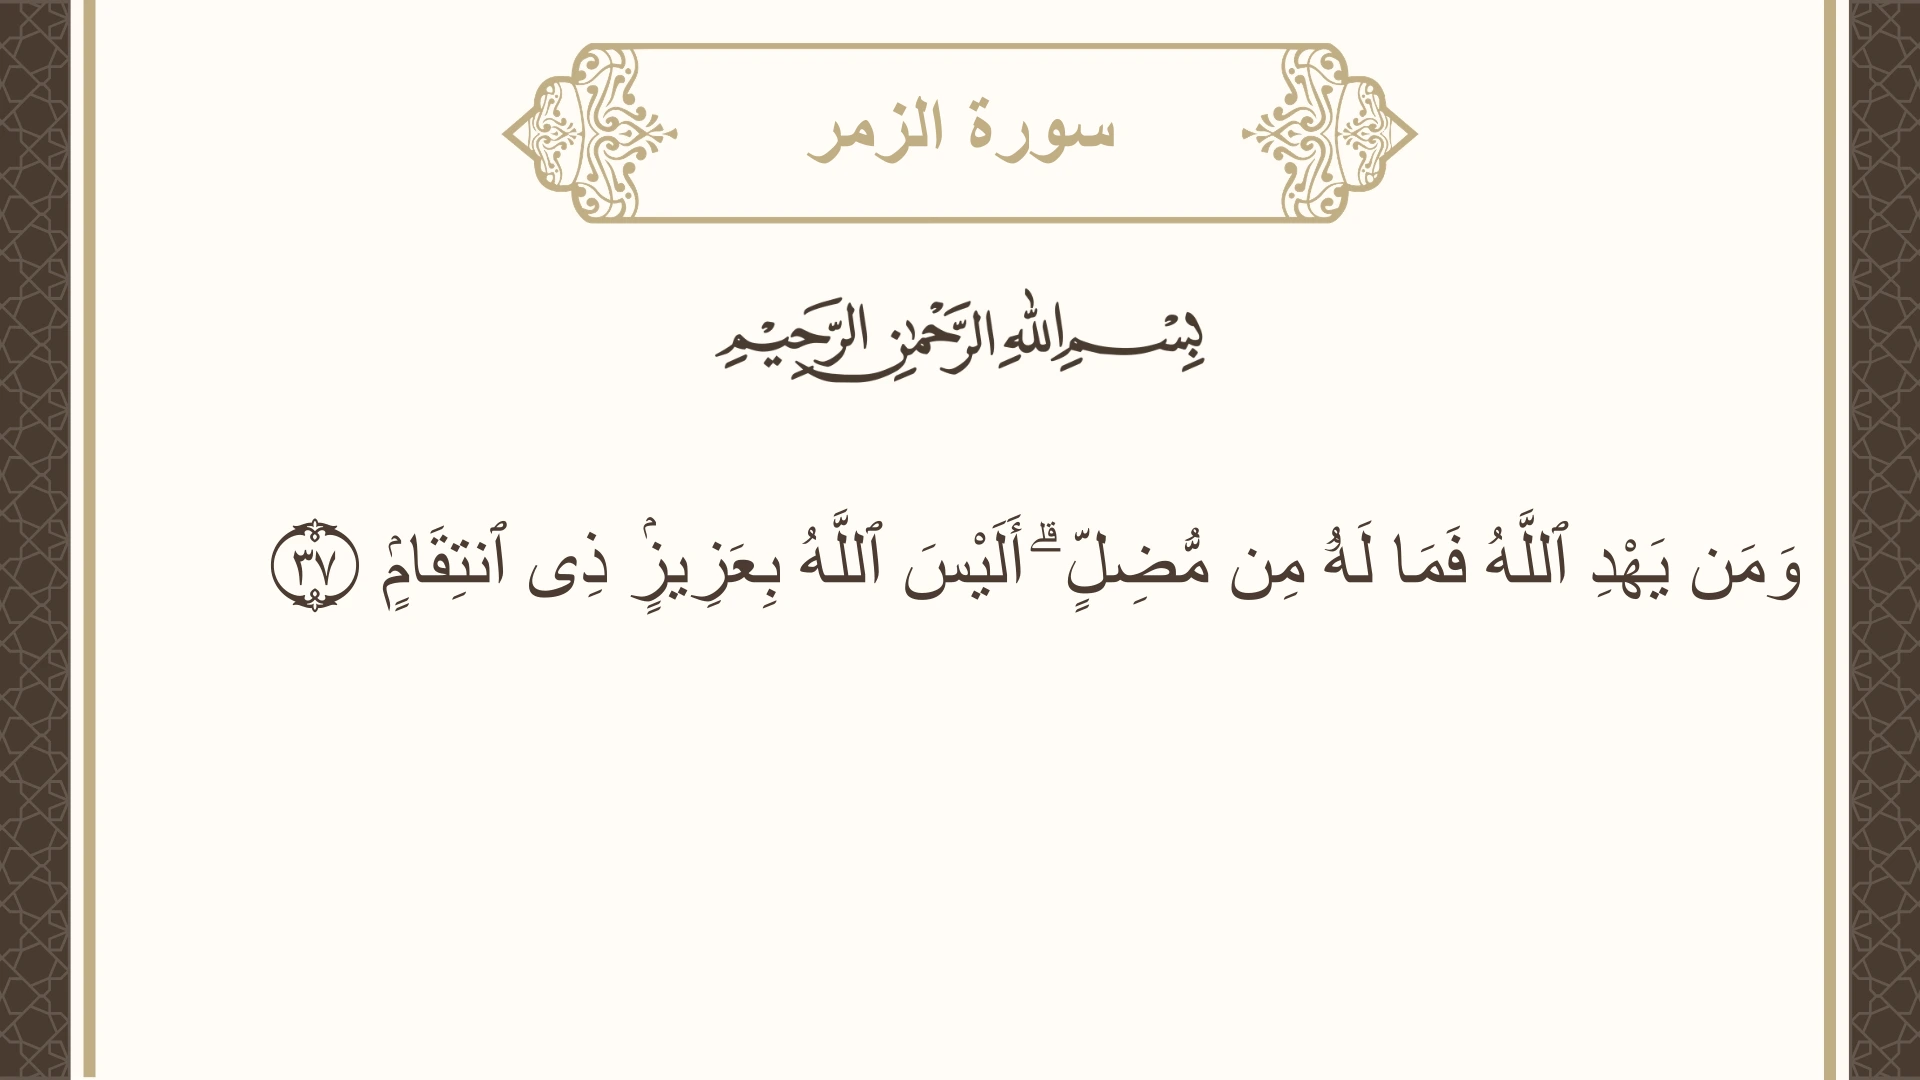 سورة الزمر
بِسْمِ اللهِ الرَّحْمٰنِ الرَّحِيْمِ
وَمَن يَهْدِ ٱللَّهُ فَمَا لَهُۥ مِن مُّضِلٍّ ۗ أَلَيْسَ ٱللَّهُ بِعَزِيزٍۢ ذِى ٱنتِقَامٍۢ ٣٧